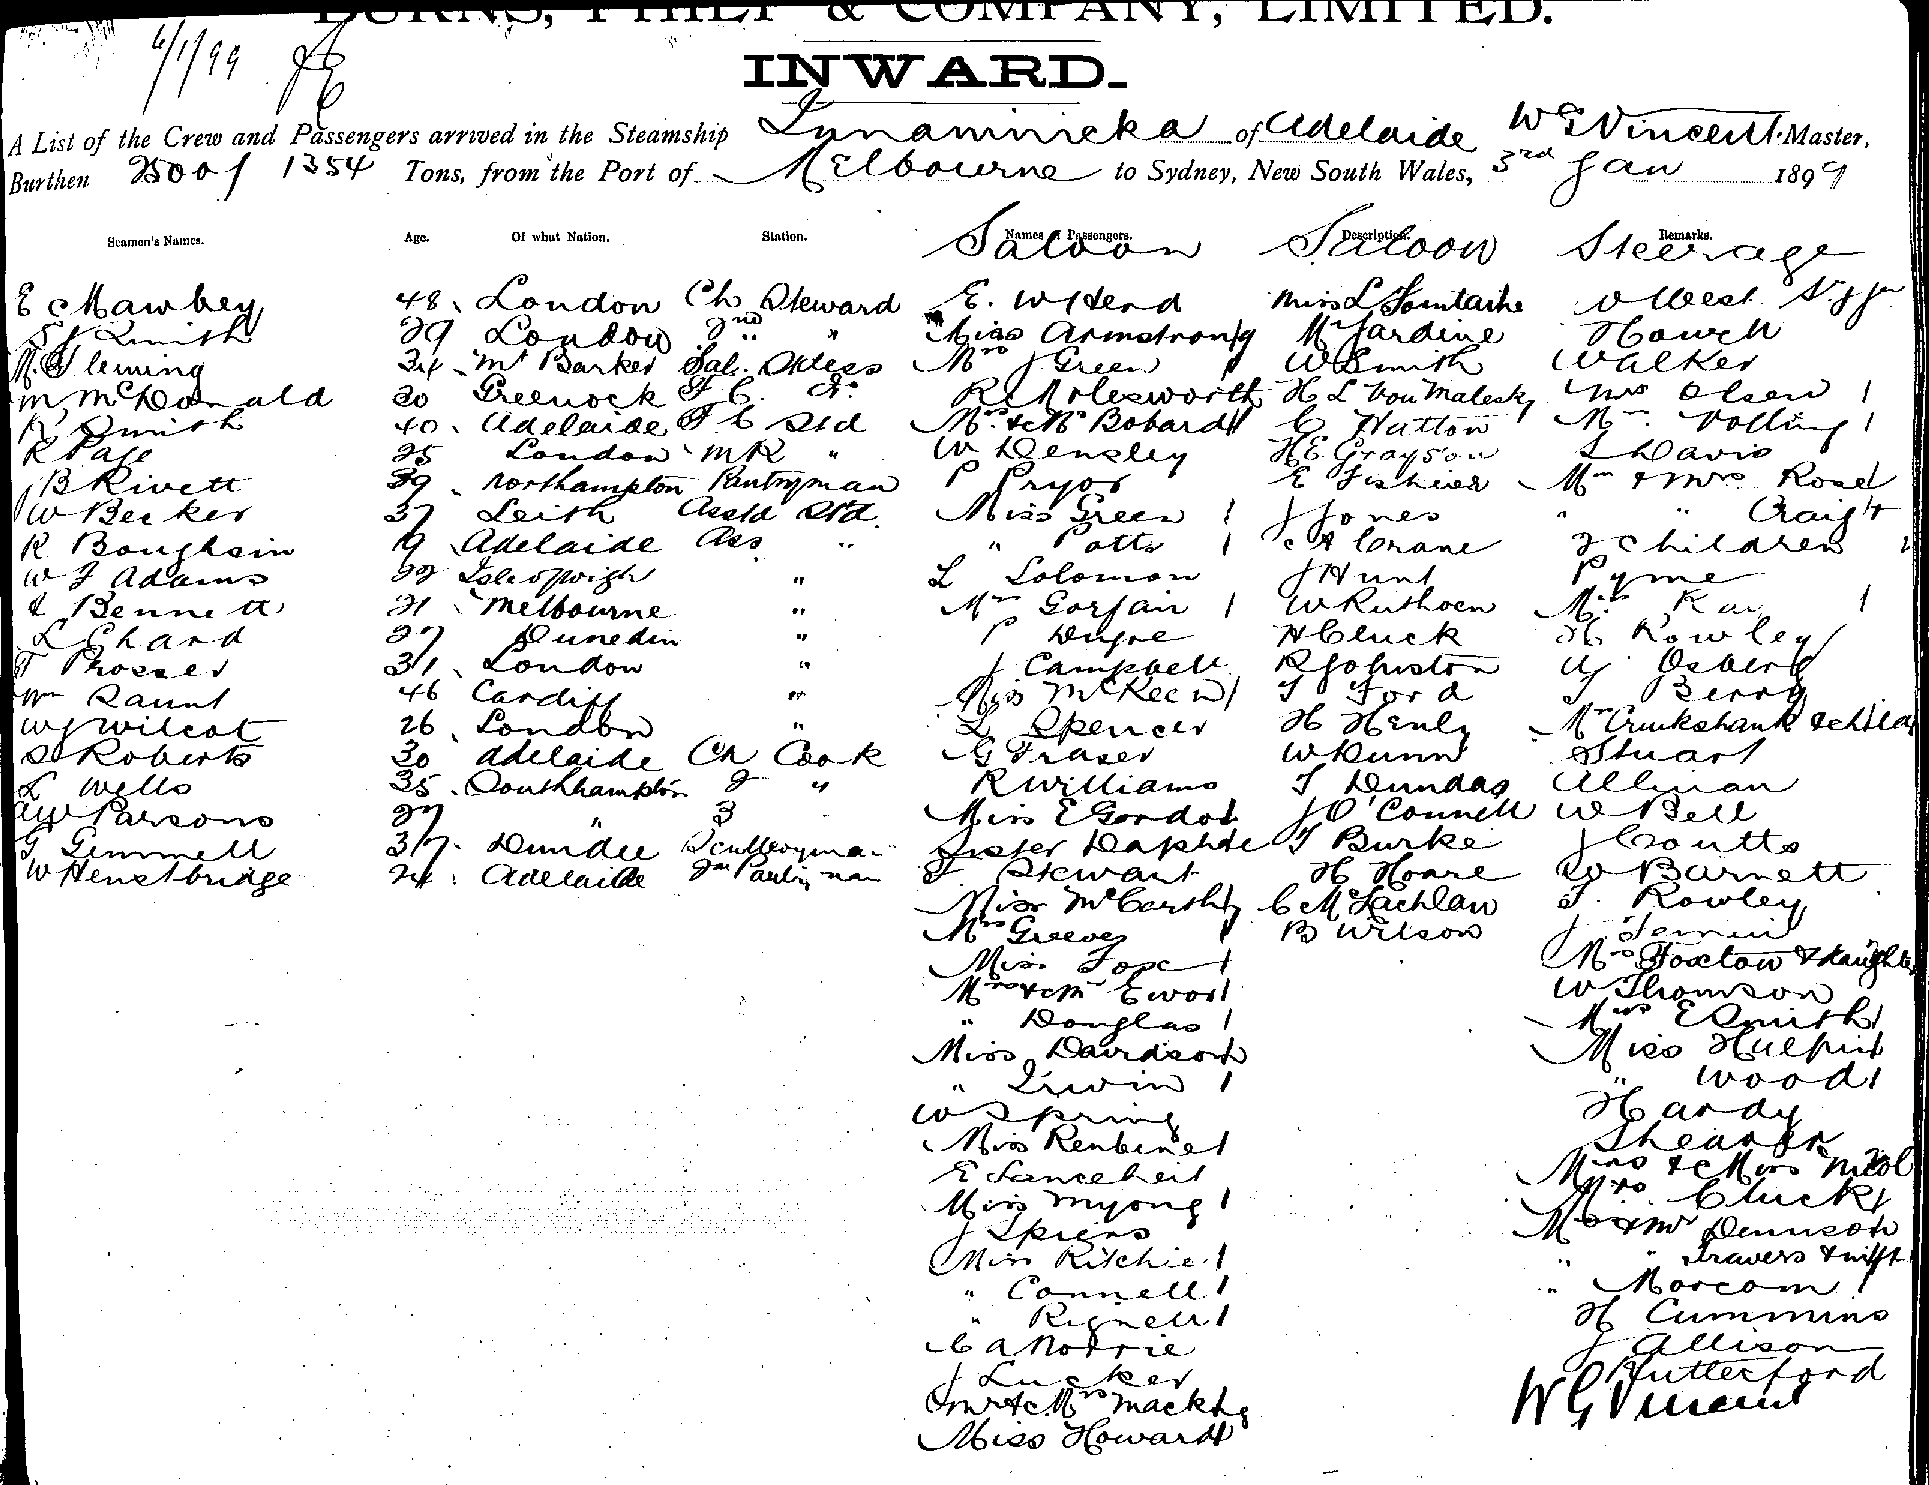 BURNS, PHILP & COMPANY, LIMITED.
6/1/99
INWARD.
A List of the Crew and Passengers arrived in the Steamship Innamincka of Adelaide W G Vincent Master,
Burthen 2500 / 1354 Tons, from the Port of Melbourne to Sydney, New South Wales, 3rd Jan 1899
Seamen's Names. Age. Of what Nation. Station. Names of Passengers. Description. Remarks.
Saloon Saloon Steerage
E Mawbey 48 London Ch Steward E. W Hend Miss L West
Smith 29 London 2nd " Miss Armstrong Mr Jardine Howell
Fleming 34 Mt Barker Sal. Stdess Mrs J Green W Smith Walker
M McDonald 20 Greenock Molesworth H L Von Mrs Olsen
R Smith 40 Adelaide F C Std Mrs & Mr Bobard C Hutton Mrs Volling
R Page 25 London " W Densley H E Grayson Davis
J B Rivett 39 Northampton Pantryman P Pryor E Mr & Mrs Rose
W Becker 37 Leith Asstd Std. Miss Green J Jones " " Craig
R 19 Adelaide Ass " " Potts Crane 2 Children
W J Adams 22 Isle of Wight " L Solomon J Hunt Pyme
Bennett 21 Melbourne " Mrs W Ruthven Mrs
L Chard 27 Dunedin " P H Cluck H Rowley
T Prosser 31 London " J Campbell R Johnston Osberg
Wm Saunt 46 Cardiff " Miss McKeen T Ford T Berry
W J Wilcot 26 London " L Spencer H Henly Mrs Cruikshank & child
S Roberts 30 Adelaide Ch Cook G Fraser W Dunn Stuart
L Wells 35 Southhampton 2 " R Williams T Dundas Allman
A W Parsons 27 " 3 Miss E Gordon J O'Connell W Bell
G Gemmell 37 Dundee Sculleryman Sister Daphne T Burke J Coutts
W Henstbridge 24 Adelaide 2nd Pantryman Stewart H Hoare W Barnett
Miss McCarthy C McLachlan T. Rowley
Mrs Greeves B Wilson J
Miss Mrs Foxton & daughter
Mrs & Mr W Thomson
" Douglas Mrs E Smith
Miss Davidson Miss Hulpin
" Irwin " Wood
W Spring Hardy
Miss Shearer
E Mrs & Miss Nicol
Miss Myong Mrs Cluck
J Spiers Mrs & Mr Dennison
Miss Ritchie " " Travers
" Connell " Morcom
" H Cummins
C A Norrie J Allison
J Lucker Rutterford
& Mrs W G Vincent
Miss Howard